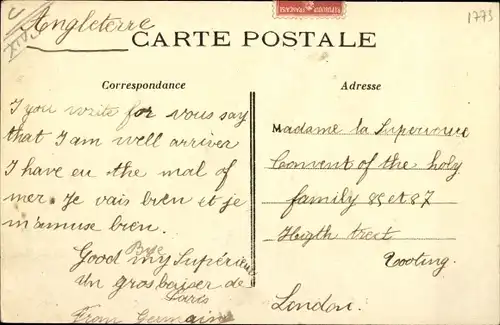 Angleterre
1773
CARTE POSTALE
Correspondance
I you write for vous say
that I am well arriver
I have eu the mal of
mer. Je vais bien et je
m'amuse bien.
Good Bye my Supérieure
un gros baiser de
Paris
From Germain
Adresse
Madame la Superieure
Convent of the holy
family 85 et 87
Higth treet
Tooting.
London.